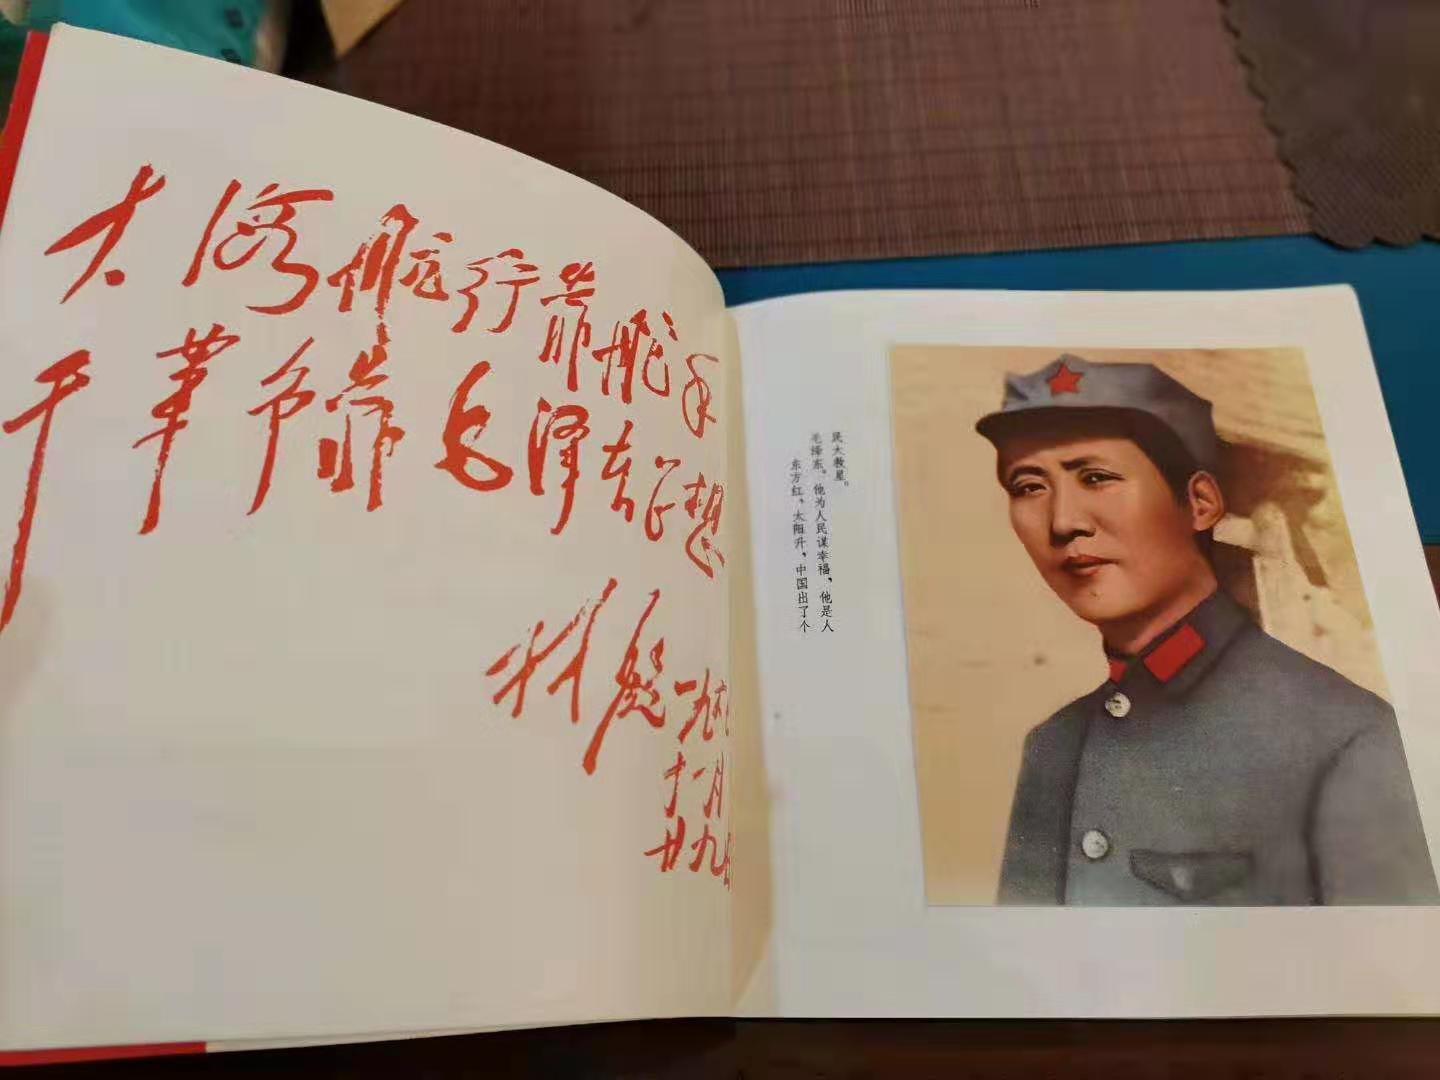 大海航行靠舵手
干革命靠毛泽东思想
林彪 一九六
十一月
廿九日
东方红，太阳升，中国出了个
毛泽东。他为人民谋幸福，他是人
民大救星。